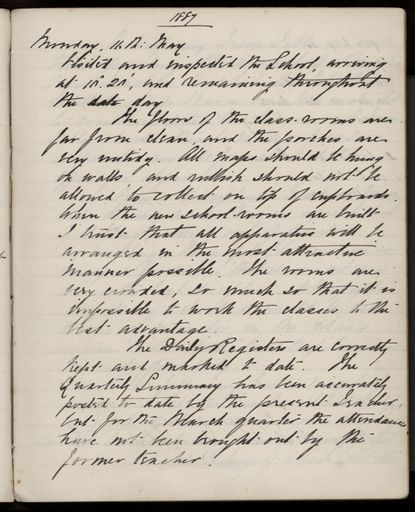 1887
Monday, 11.th: May
Visited and inspected the School, arriving
at 10.20', and remaining throughout
the date day
The floors of the class-rooms are
far from clean, and the porches are
very untidy. All maps should be hung
on walls and rubbish should not be
allowed to collect on top of cupboards.
When the new school-rooms are built
I trust that all apparatus will be
arranged in the most attractive
manner possible. The rooms are
very crowded, so much so that it is
impossible to work the classes to the
best advantage.
The Daily Registers are correctly
kept and marked to date. The
Quarterly Summary has been accurately
posted to date by the present Teacher,
but for the March quarter the attendances
have not been brought out by the
former teacher.